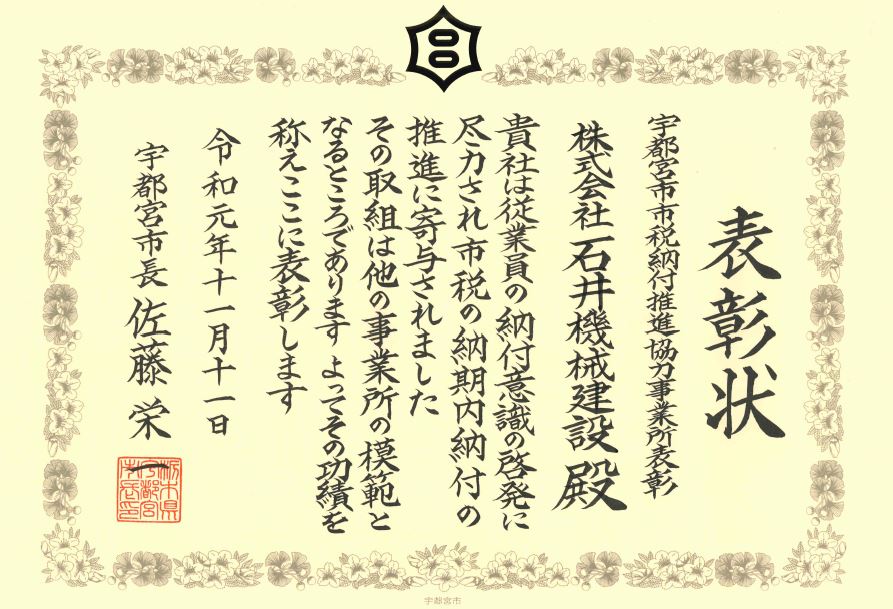 表彰状
宇都宮市市税納付推進協力事業所表彰
株式会社石井機械建設殿
貴社は従業員の納付意識の啓発に
尽力され市税の納期内納付の
推進に寄与されました
その取組は他の事業所の模範と
なるところであります よってその功績を
称えここに表彰します
令和元年十一月十一日
宇都宮市長 佐藤栄一
栃木県
宇都宮
市長印
宇都宮市